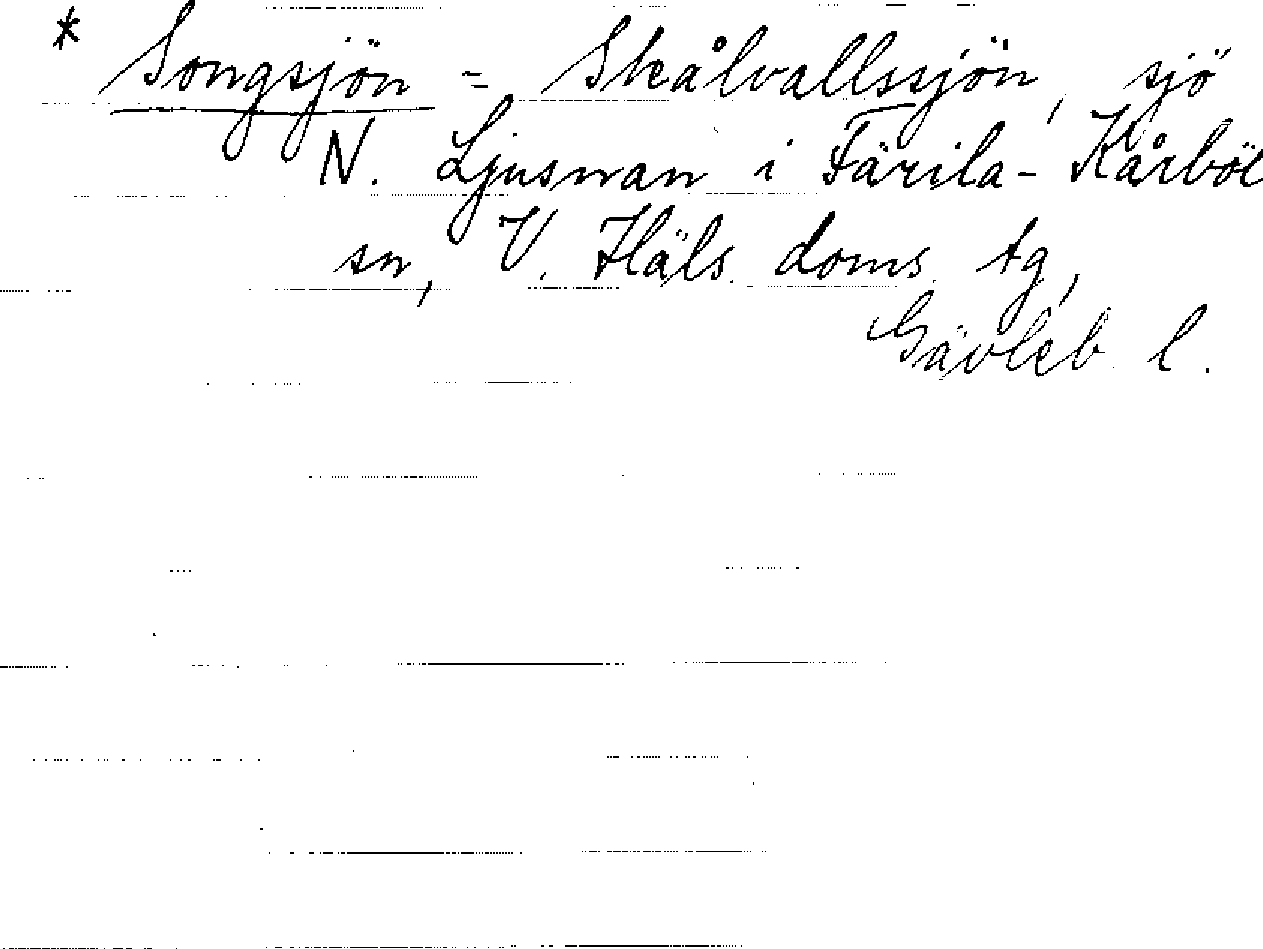 * Songsjön = Skålvallssjön, sjö
N. Ljusnan i Färila-Kårböl
sn, V. Häls. doms. tg,
Gävleb. l.